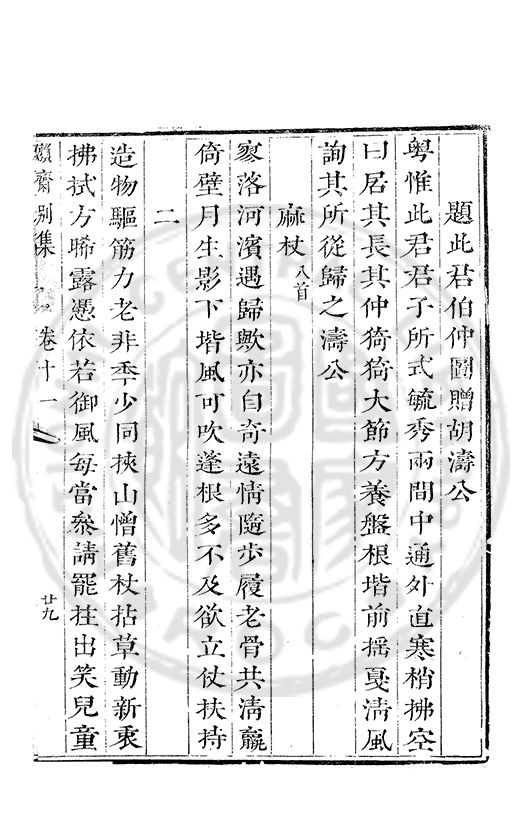 題此君伯仲圖贈胡濤公
粤惟此君君子所式毓秀兩間中通外直寒梢拂空
曰居其長其仲猗猗大節方養盤根堦前摇戛清風
詢其所從歸之濤公
蔴杖八首
寥落河濱遇歸歟亦自奇遠情隨步履老骨共清羸
倚壁月生影下堦風可吹蓬根多不及欲立仗扶持
二
造物驅筋力老非秊少同挾山憎舊杖拈草動新衷
拂拭方晞露憑依若御風每當叅請罷拄出笑兒童
懶齋别集
卷十一
廿九